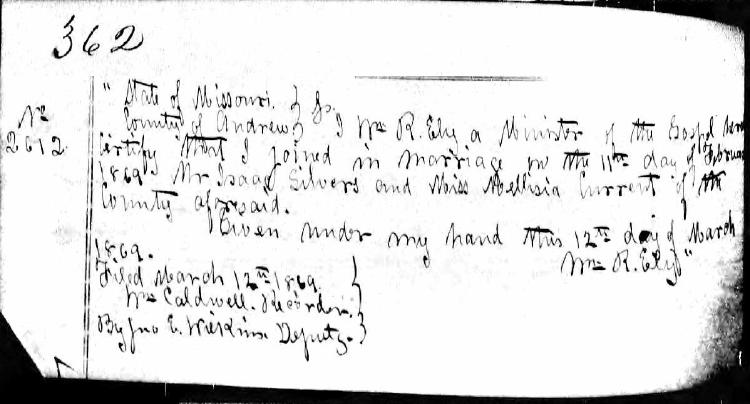 362
No
2012
"State of Missouri. } Ss.
County of Andrew } I Wm R. Ely a Minister of the Gospel
Certify that I joined in marriage on the 11th day of February
1869 Mr Isaac Silvers and Miss Mellisia Current of the
County aforesaid.
Given under my hand this 12th day of March
1869. Wm R. Ely"
Filed March 12th 1869. }
Wm Caldwell. Recorder. }
By Jno E. Deputy. }